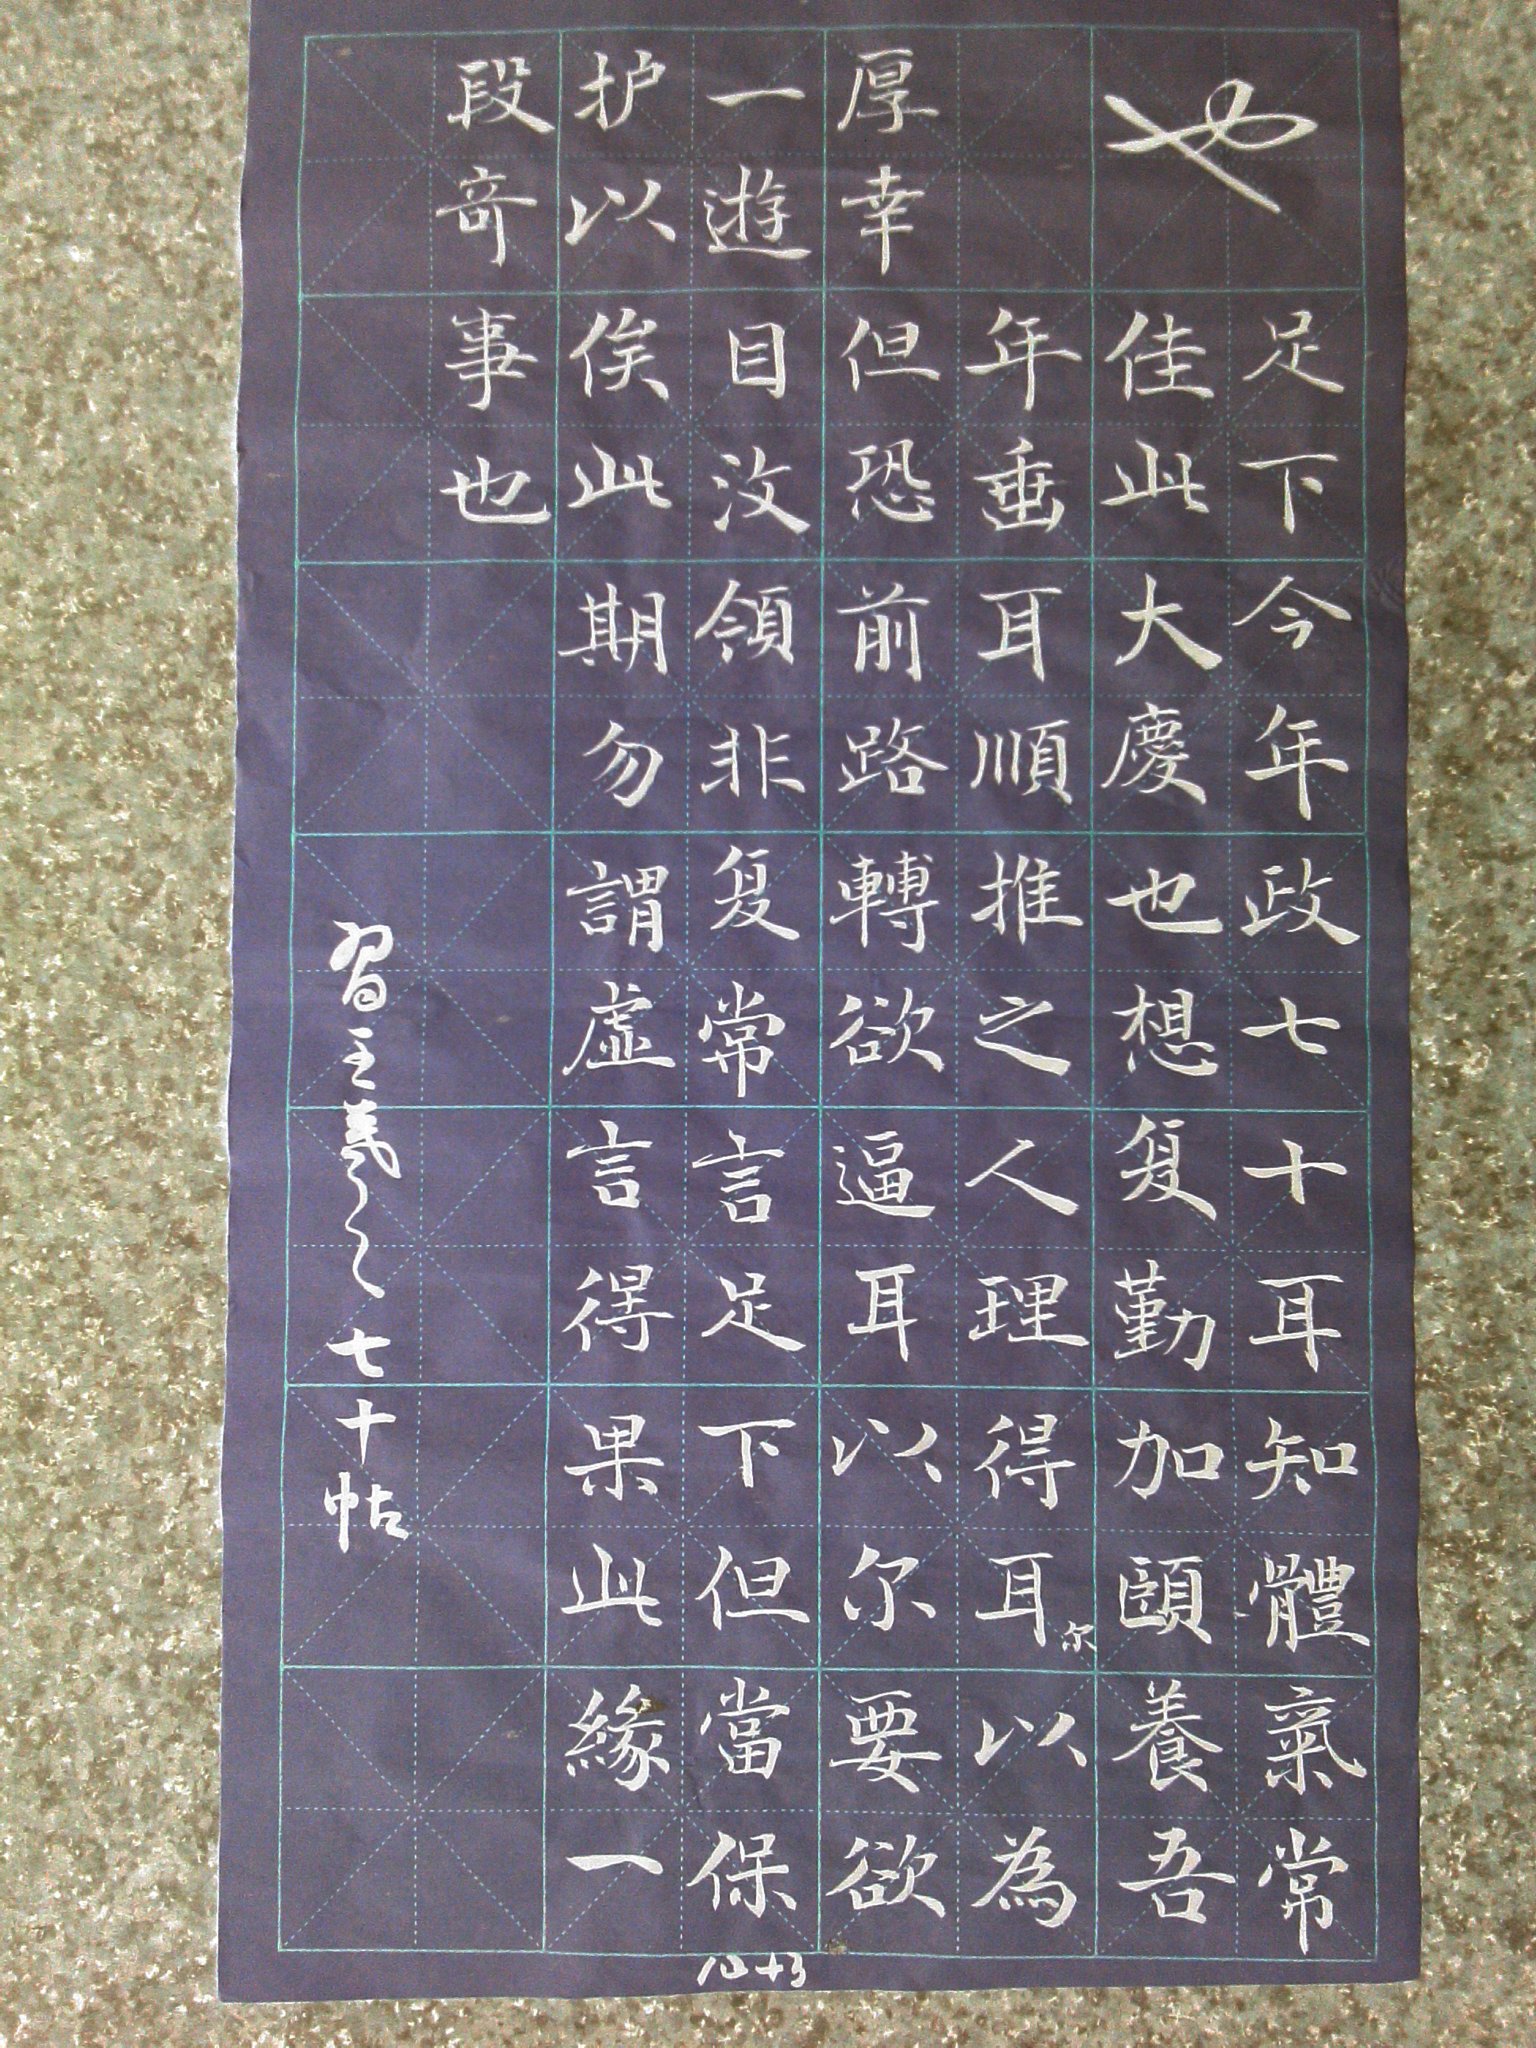 足下今年政七十耳知體氣常
佳此大慶也想复勤加頤養吾
年垂耳順推之人理得耳以為
尔
厚幸但恐前路轉欲逼耳以尔要欲
一遊目汶領非复常言足下但當保
护以俟此期勿謂虛言得果此緣一
段奇事也
習王羲之之七十帖